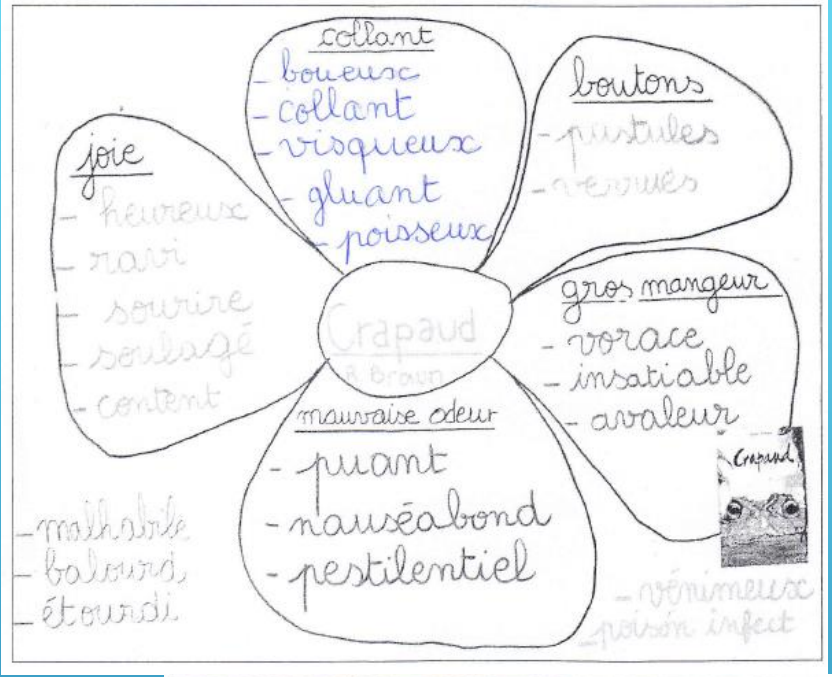 collant
- boueux
- collant
- visqueux
- gluant
- poisseux
boutons
- pustules
- verrues
joie
- heureux
- ravi
- sourire
- soulagé
- content
gros mangeur
- vorace
- insatiable
- avaleur
Crapaud
R. Braun
mauvaise odeur
- puant
- nauséabond
- pestilentiel
Crapaud
- malhabile
- balourd
- étourdi
- vénimeux
- poison infect